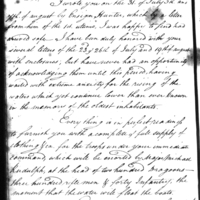 I wrote you on the 31 of July & on
7th of august by Ensign Hunter, which by a letter
from him of the 14 ulto, I was happy to find had
arrived safe. I have been duly honored with your
several letters of the 23 & 26th of July and eighth of august
with enclosures, but have never had an opportunity
of acknowledging them until this period, having
waited with extreme anxiety for the rising of the
water which yet continue lower than ever known
in the memory of the oldest inhabitants.
Every thing is in perfect readiness
to furnish you with a complete & full supply of
clothing &ca for the troops under your immediate
command which will be escorted by Major Michael
Rudulph, at the head of two hundred Dragoons
three hundred rifle men & forty Infantry, the
moment that the water will float the boats